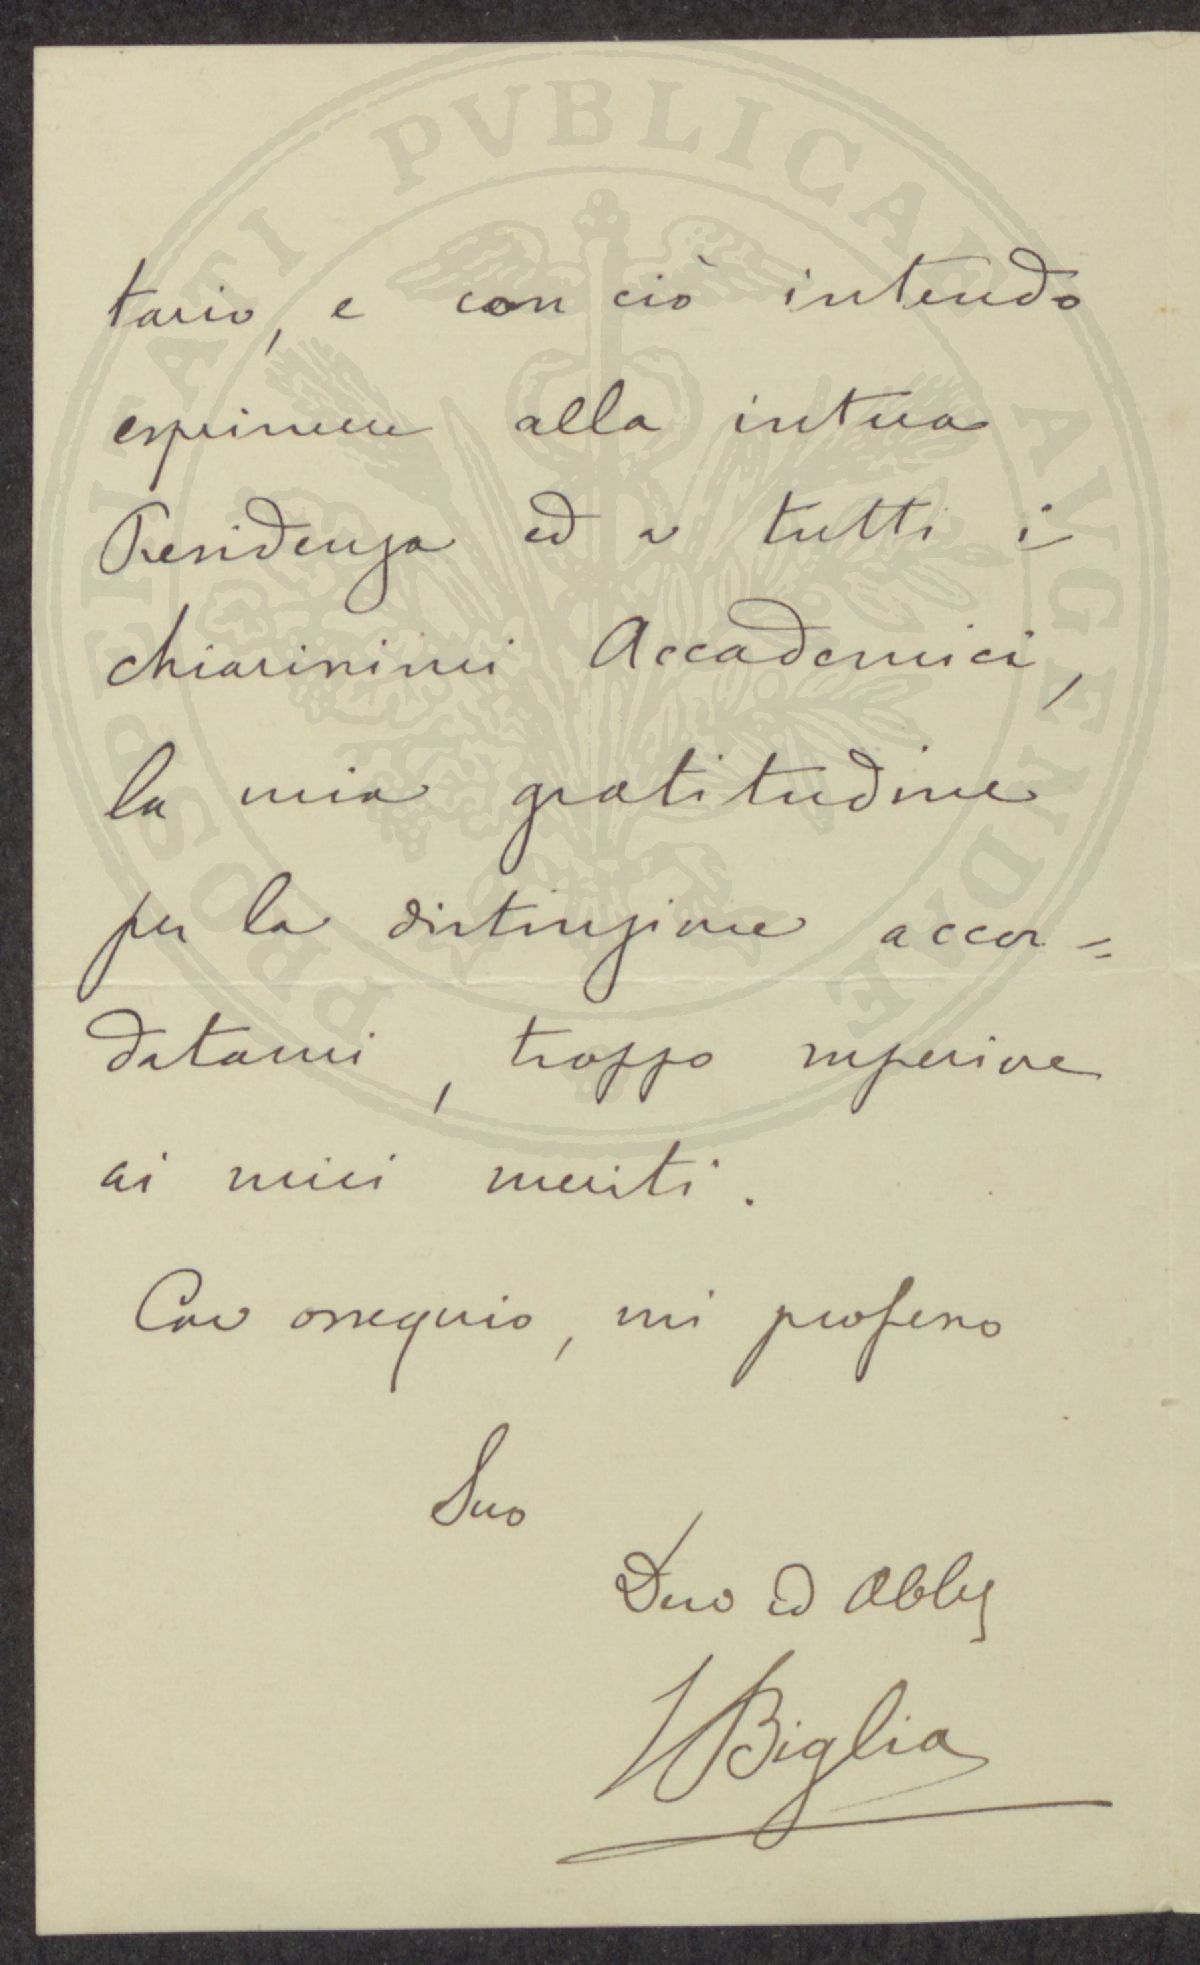 PROSPERITATI PVBLICAE AVGENDAE
tario, e con ciò intendo
esprimere alla intera
Presidenza ed a tutti i
chiarissimi Accademici,
la mia gratitudine
per la distinzione accor=
datami, troppo superiore
ai miei meriti.
Con ossequio, mi professo
Suo
ed Obblg
Biglia